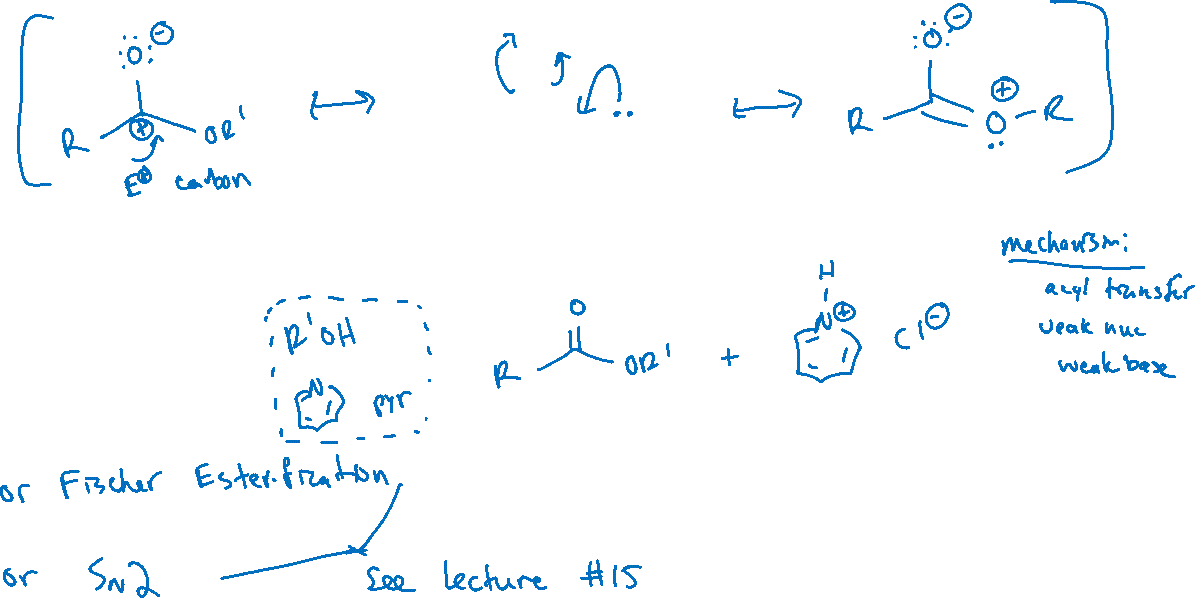 :Ö: ⊖
R ⊕ OR'
E⊕ carbon
:Ö: ⊖
R O ⊕ R
mechanism:
acyl transfer
weak nuc
weak base
R'OH
N pyr
O
R OR' + H N⊕ Cl⊖
or Fischer Esterification
or SN2 See lecture #15